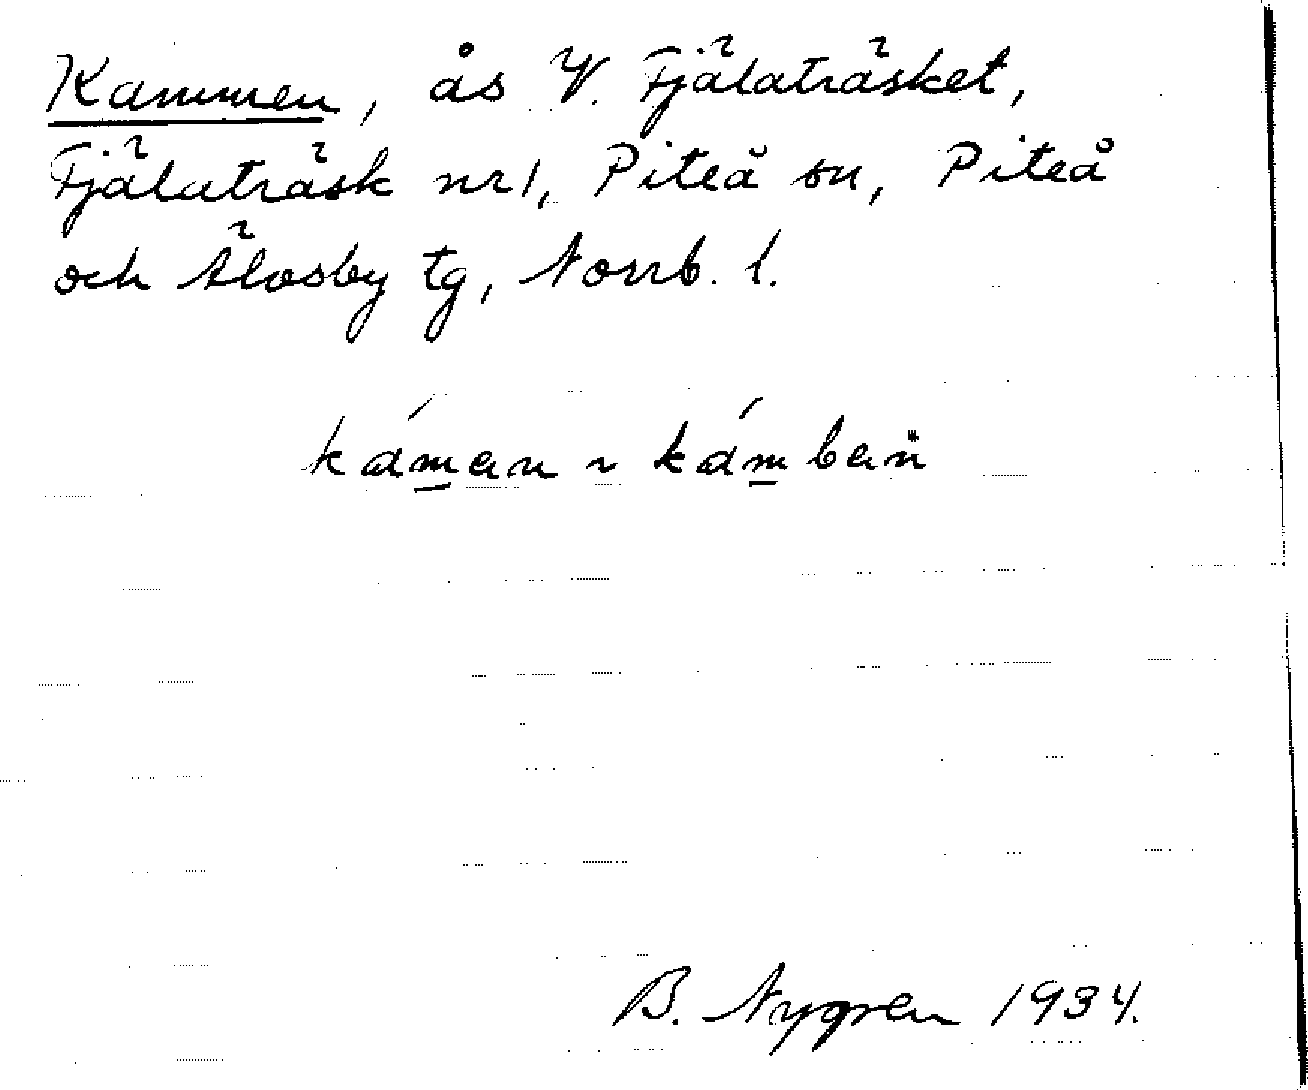 Kammen, ås V. Fjälaträsket,
Fjälaträsk nr 1, Piteå sn, Piteå
och Älvsby tg, Norrb. l.
káman ~ kámban
B. Nygren 1934.